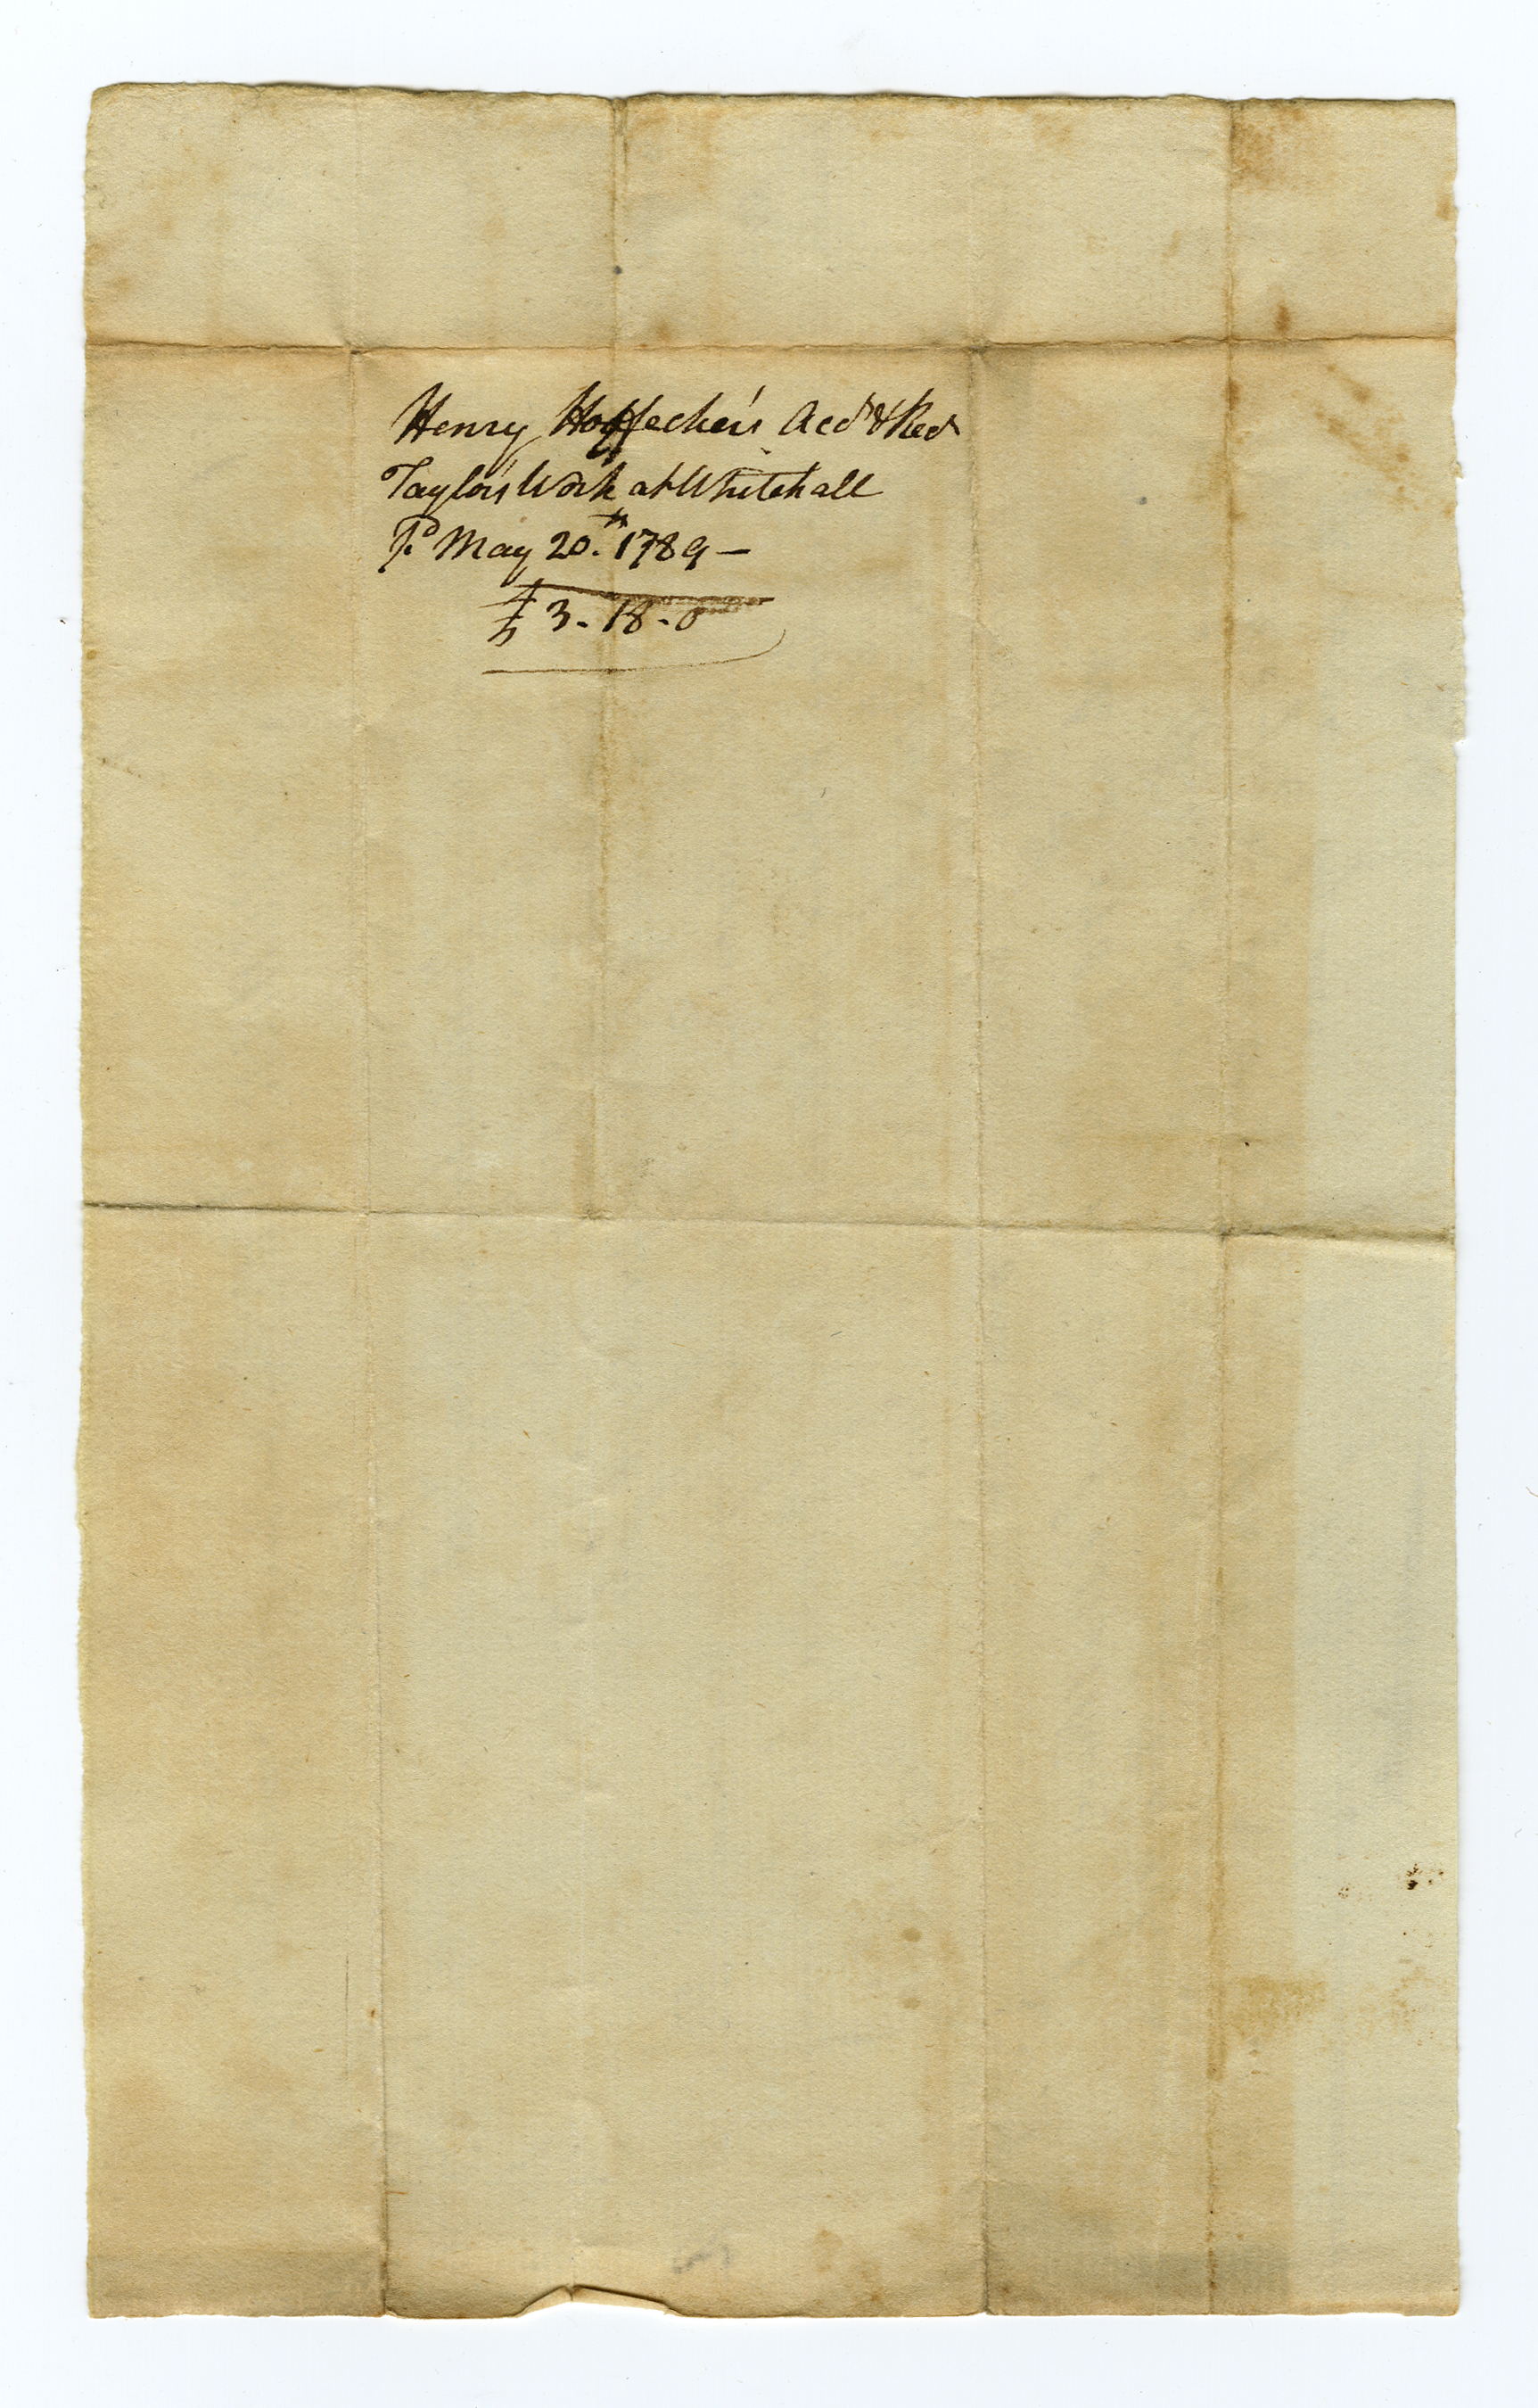 Henry Hoffecker's Acct & Rect
Taylor's Work at Whitehall
Pd May 20th 1789 —
£ 3. 18. 0